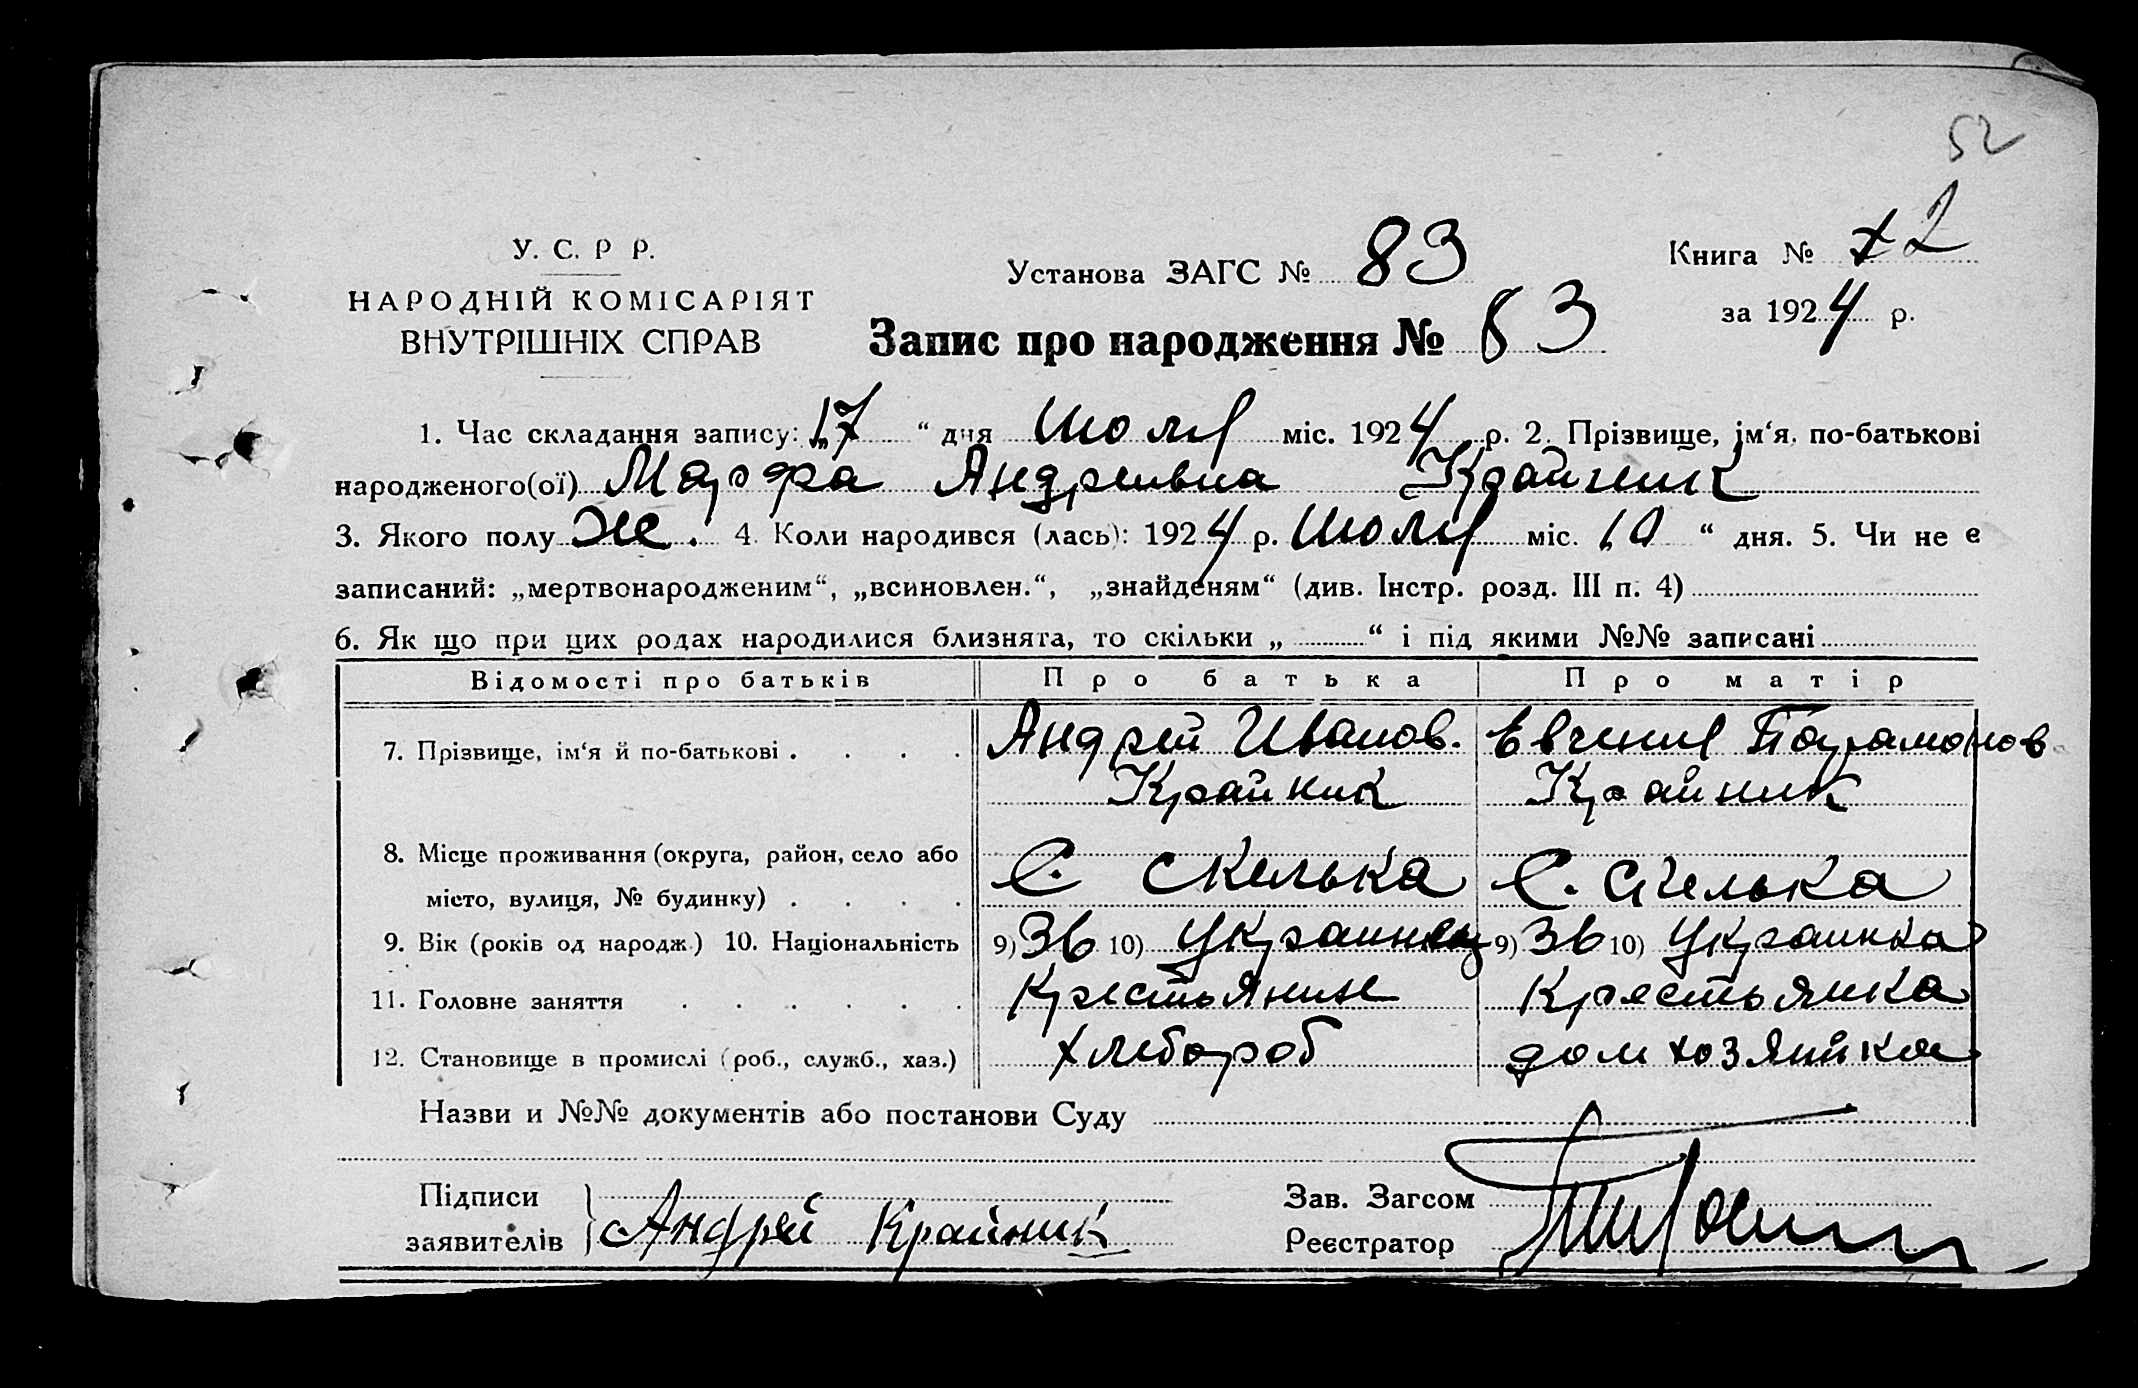 52
У. С. Р Р.
НАРОДНІЙ КОМІСАРІЯТ
ВНУТРІШНІХ СПРАВ
Установа ЗАГС № 83
Книга № 2
за 1924 р.
Запис про народження № 83
1. Час складання запису: „17 “ дня Июля міс. 1924 р. 2. Прізвище, ім‘я, по-батькові
народженого(ої) Марфа Андреевна Крайник
3. Якого полу Ж. 4. Коли народився (лась): 1924 р. Июля міс. 10 “ дня. 5. Чи не є
записаний: „мертвонародженим“, „всиновлен.“, „знайденям“ (див. Інстр. розд. III п. 4)
6. Як що при цих родах народилися близнята, то скільки „ “ і під якими №№ записані
Відомості про батьків Про батька Про матір
7. Прізвище, ім‘я й по-батькові . . . . Андрей Иванов. Евгения Парамонов
Крайник Крайник
8. Місце проживання (округа, район, село або
місто, вулиця, № будинку) . . . . С. Скелька С. Скелька
9. Вік (років од народж.) 10. Національність 9) 36 10) Украинец 9) 36 10) Украинка
11. Головне заняття . . . . . . Крестьянин Крестьянка
12. Становище в промислі (роб., служб., хаз.) хлебороб дом хозяйка
Назви и №№ документів або постанови Суду
Підписи
заявителів } Андрей Крайник
Зав. Загсом
Реєстратор